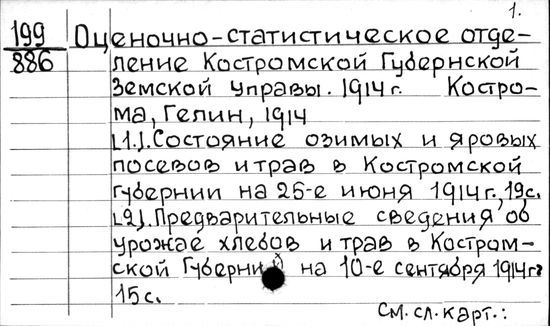 1.
199
886
Оценочно-статистическое отде-
ление Костромской Губернской
Земской управы. 1914 г. Костро-
ма, Гелин, 1914
[1.]. Состояние озимых и яровых
посевов и трав в Костромской
губернии на 25-е июня 1914 г., 19 с.
[2]. Предварительные сведения об
урожае хлебов и трав в Костром-
ской Губернии на 10-е сентября 1914 г.
15 с.
См. сл. карт.: